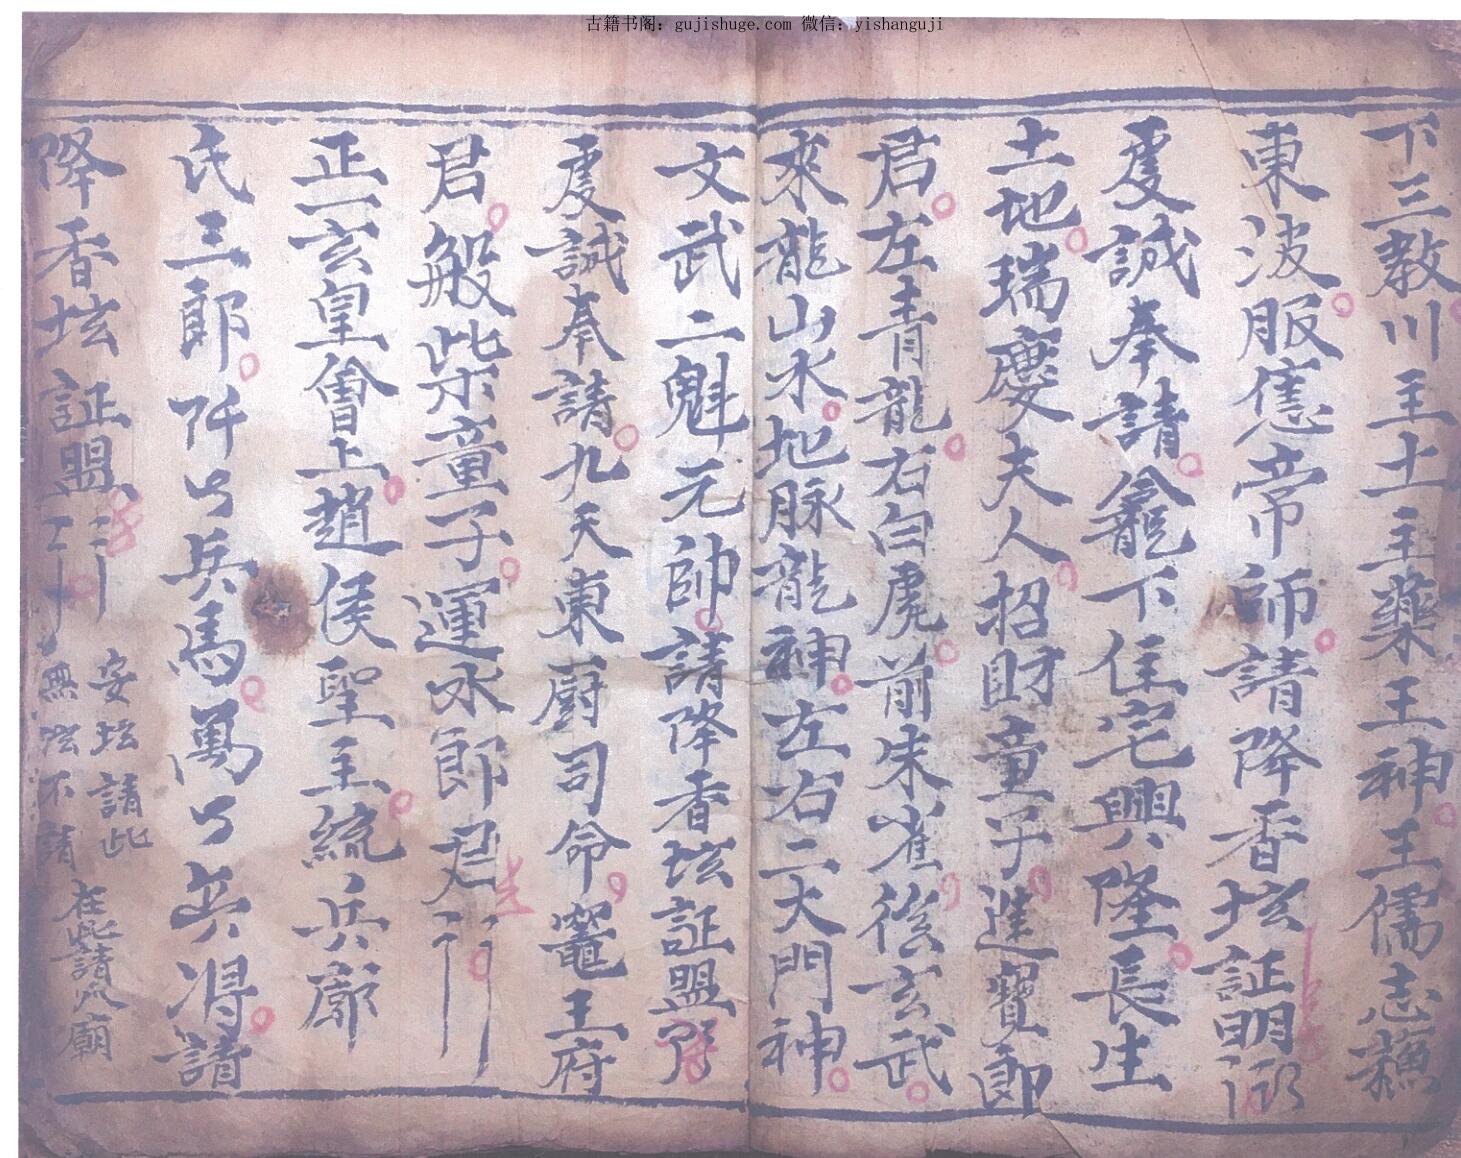 古籍书阁：gujishuge.com 微信：yishanguji
下三教川主土主藥王神王儒志蘓
東波服憲帝師請降香坛証明
虔誠奉請龕下住宅興隆長生
土地瑞慶夫人招財童子進寳郎
君左青龍右白虎前朱雀後玄武
來龍山水地脉龍神左右二大門神
文武二魁元帥請降香坛証盟
虔誠奉請九天東厨司命竈王府
君般柴童子運水郎君
正一玄皇會上趙侯聖主統兵廖
氏三郎阡公兵馬萬公兵将請
降香坛証盟
安坛請此
無坛不請
在此請八廟